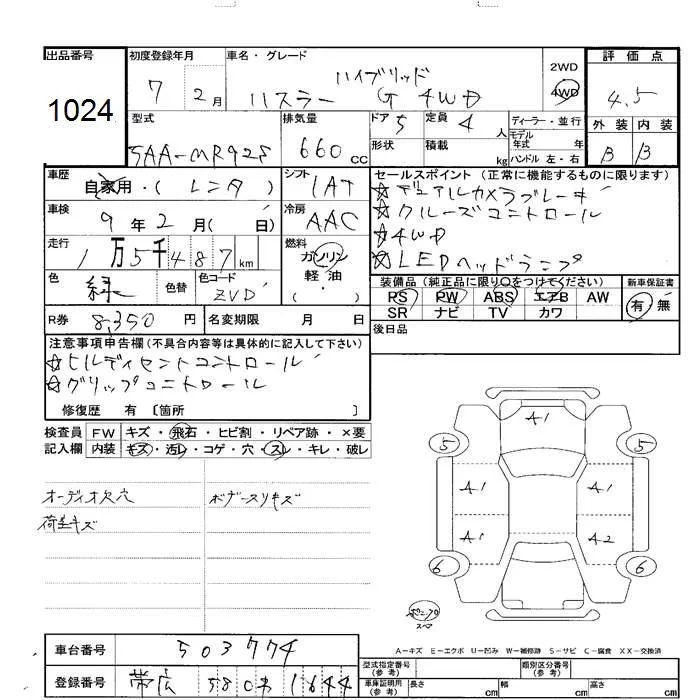 出品番号
1024
初度登録年月
7 2月
車名・グレード
ハイブリッド
ハスラー G 4WD
2WD
4WD
評価点
4.5
外装 内装
B B
型式
5AA-MR92S
排気量
660 CC
ドア 5
定員 4 人
形状
積載 kg
ディーラー・並行
モデル年式 年式
ハンドル 左・右
車歴
自家用・(レンタ)
シフト
IAT
車検
9年2月( 日)
冷房
AAC
走行
1万5千487km
燃料
ガソリン
軽油・
( )
色
緑
色替
色コード
ZVD
R券 8,350 円
名変期限 月 日
セールスポイント(正常に機能するものに限ります)
☆デュアルカメラブレーキ
☆クルーズコントロール
☆4WD
☆LEDヘッドランプ
装備品(純正品に限り○をつけてください)
PS PW ABS エアB AW
SR ナビ TV カワ
新車保証書
有 無
後日品
注意事項申告欄(不具合内容等は具体的に記入して下さい)
☆ヒルディセントコントロール
☆グリップコントロール
修復歴 有 [箇所 ]
検査員記入欄
FW キズ・飛石・ヒビ割・リペア跡・×要
内装 キズ・汚レ・コゲ・穴・スレ・キレ・破レ
オーディオ欠穴
荷室キズ
ボデースリキズ
A1
5 5
A1 A1
A1 A2
6 6
スペア
A-キズ E-エクボ U-凹み W-補修跡 S-サビ C-腐食 XX-交換済
車台番号 503774
登録番号 帯広 580 1644
型式指定番号(参考)
類別区分番号(参考)
車庫証明用(参考) 長さ cm 幅 cm 高さ cm